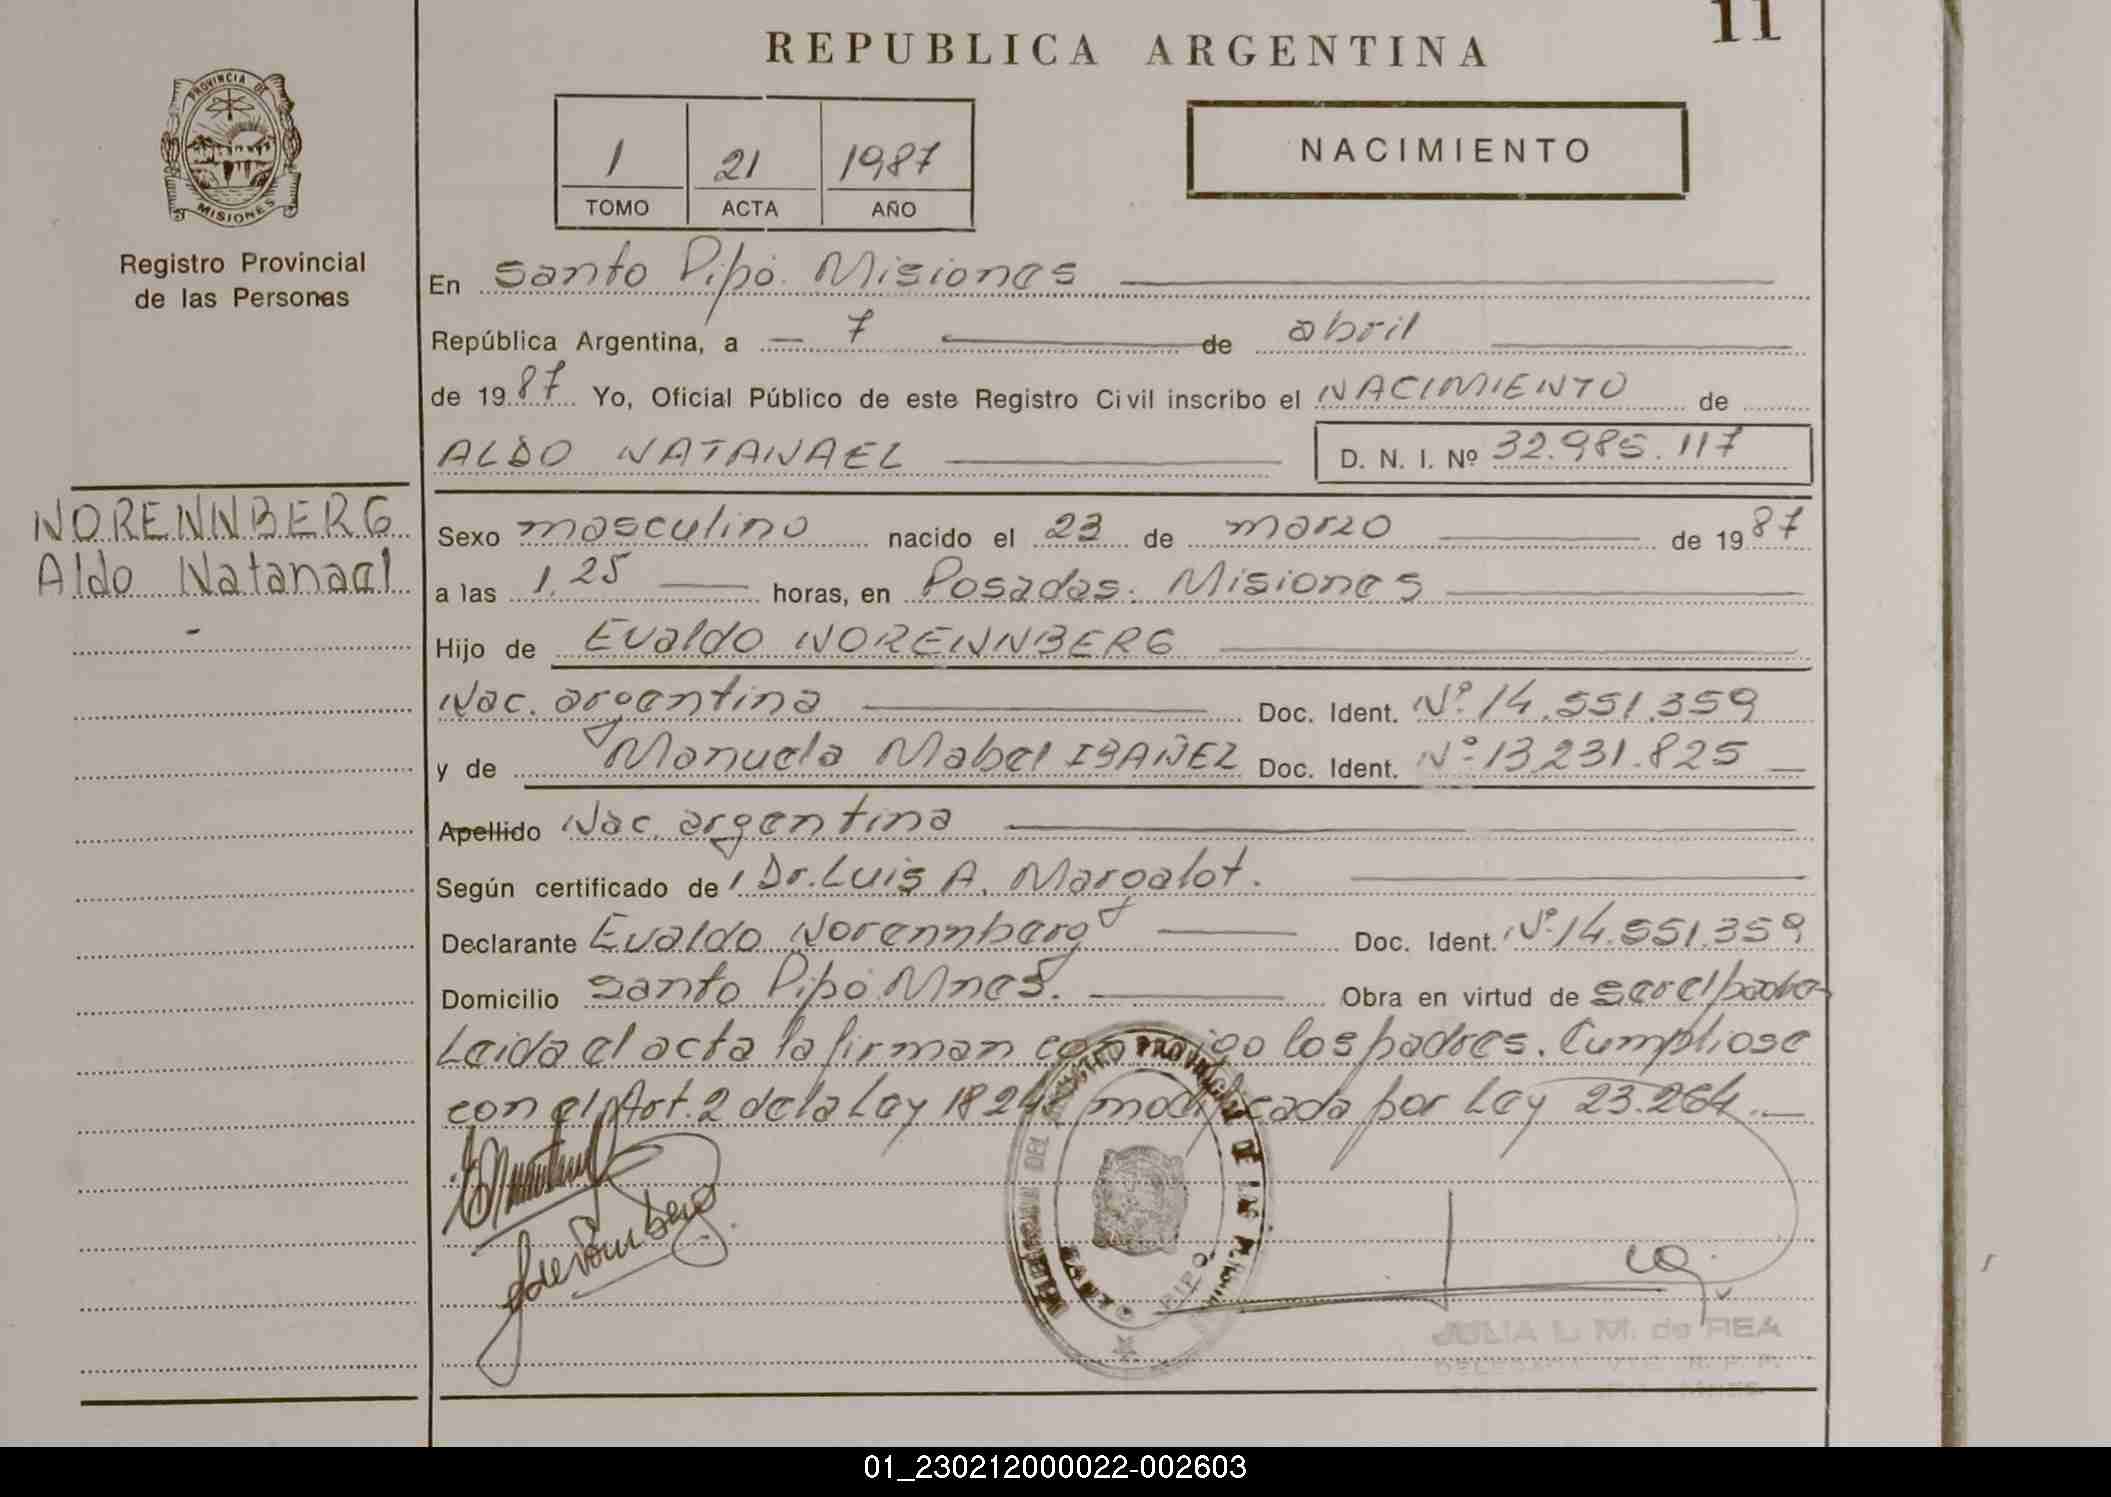 11
REPUBLICA ARGENTINA
PROVINCIA DE
MISIONES
Registro Provincial
de las Personas
1 21 1987
TOMO ACTA AÑO
NACIMIENTO
En Santo Pipó. Misiones
República Argentina, a 7 de abril
de 1987 Yo, Oficial Público de este Registro Civil inscribo el NACIMIENTO de
ALDO NATANAEL D. N. I. Nº 32.985.117
NORENNBERG
Aldo Natanael
Sexo masculino nacido el 23 de marzo de 1987
a las 1,25 horas, en Posadas. Misiones
Hijo de Evaldo NORENNBERG
Nac. argentina Doc. Ident. Nº 14.551.359
y de Manuela Mabel IBAÑEZ Doc. Ident. Nº 13.231.825
Apellido Nac. argentina
Según certificado de Dr. Luis A. Margalot.
Declarante Evaldo Norennberg Doc. Ident. Nº 14.551.359
Domicilio Santo Pipó Mnes. Obra en virtud de ser el padre
Leida el acta la firman conmigo los padres. Cumpliose
con el Art. 2 de la Ley 18248 modificada por Ley 23.264.
REGISTRO PROVINCIAL DE LAS
SANTO PIPO
JULIA L. M. de REA
01_230212000022-002603